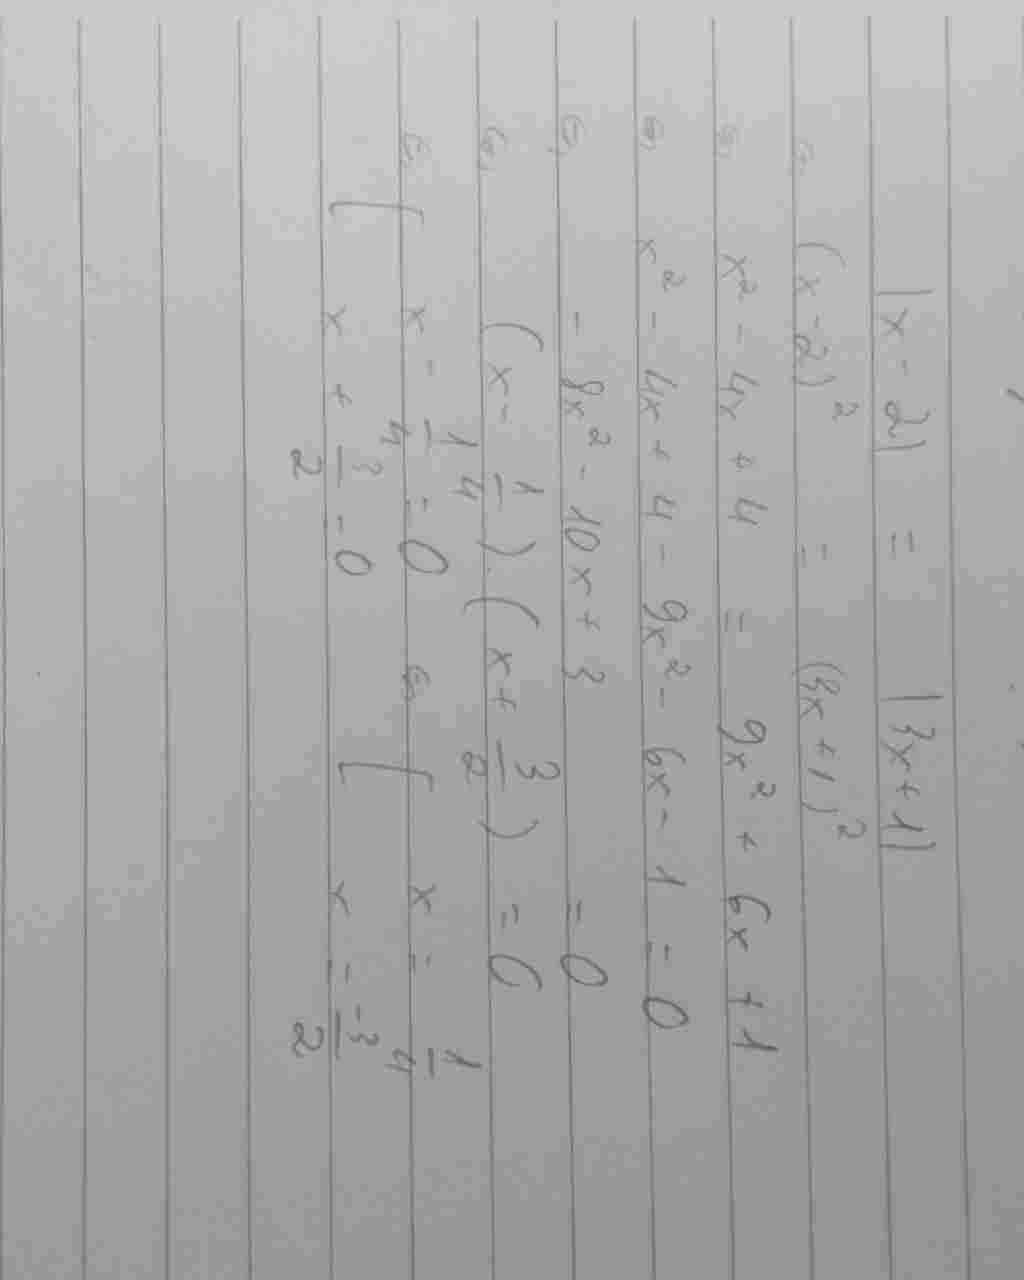 |x - 2| = |3x + 1|
⇔ (x - 2)² = (3x + 1)²
⇔ x² - 4x + 4 = 9x² + 6x + 1
⇔ x² - 4x + 4 - 9x² - 6x - 1 = 0
⇔ - 8x² - 10x + 3 = 0
⇔ (x - 1/4) . (x + 3/2) = 0
⇔ [ x - 1/4 = 0 ⇔ [ x = 1/4
x + 3/2 = 0 x = -3/2